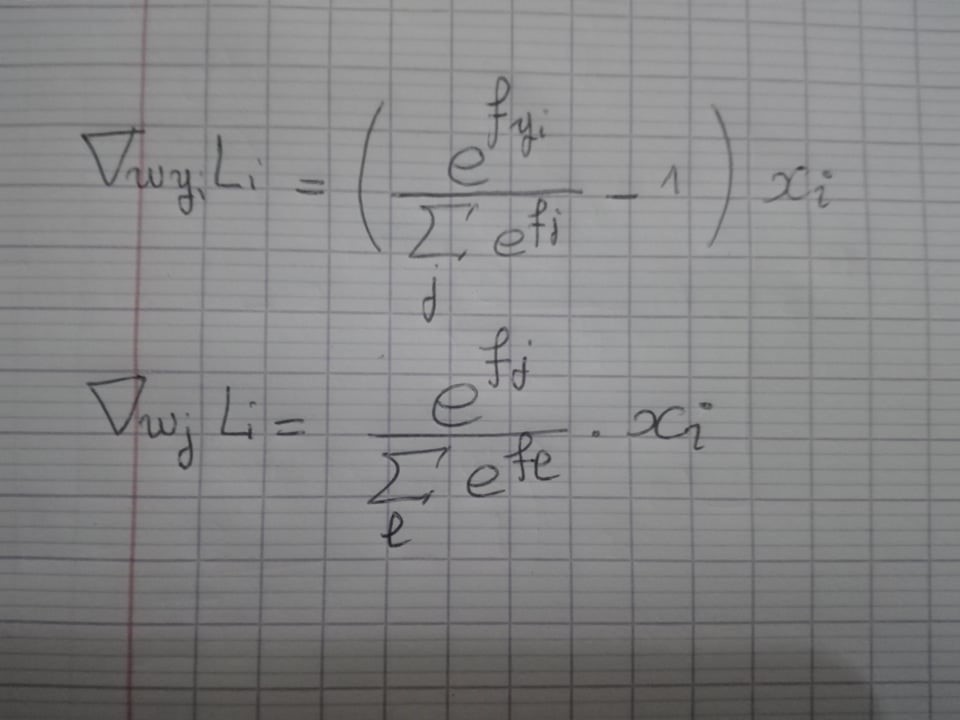 ∇_{w_{y_i}} L_i = ( \frac{e^{f_{y_i}}}{\sum_j e^{f_j}} - 1 ) x_i
∇_{w_j} L_i = \frac{e^{f_j}}{\sum_ℓ e^{f_ℓ}} · x_i